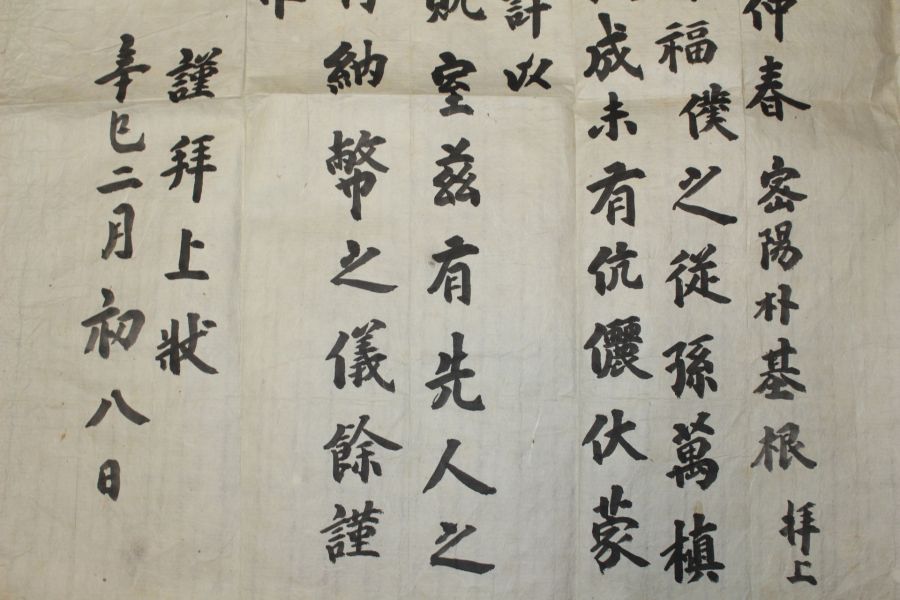 仲春 密陽朴基根 拜上
福僕之從孫萬楨
成未有伉儷伏蒙
許以
貺室玆有先人之
納幣之儀餘謹
謹拜上狀
辛巳二月初八日